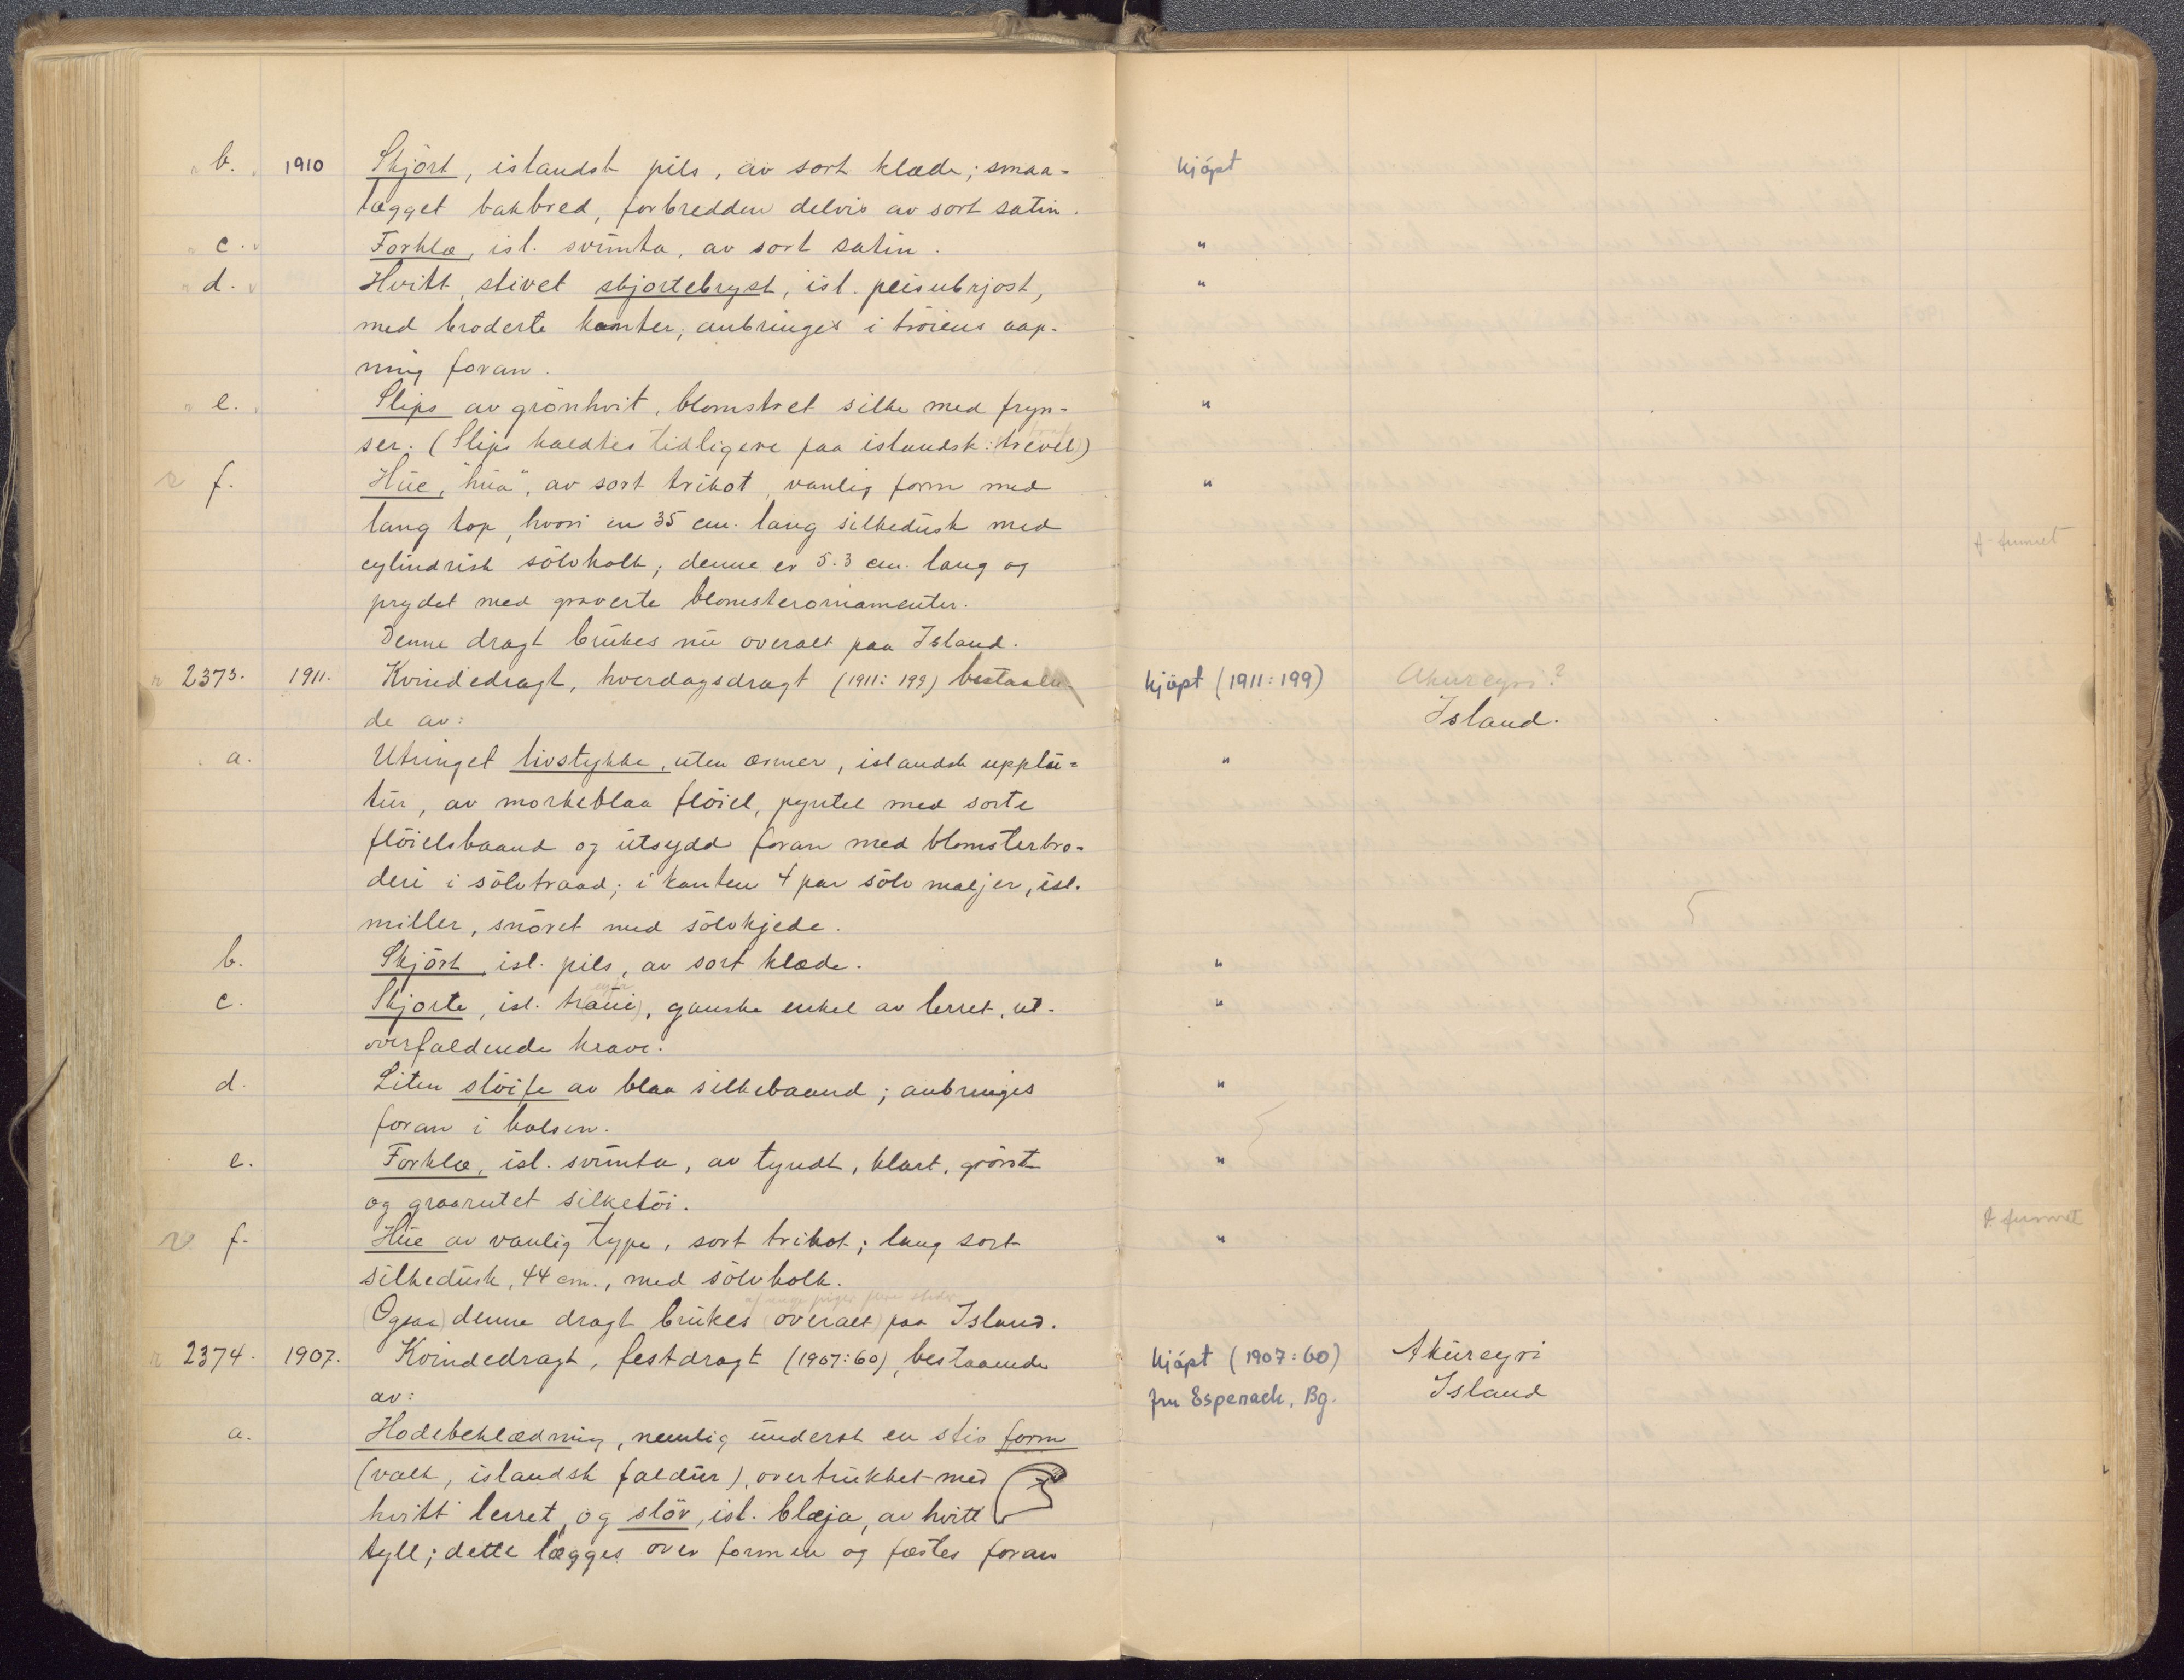 b. 1910 Skjört, islandsk pils, av sort klæde; smaa- kjöpt
lægget bakbred, forbredden delvis av sort satin.
c. Forklæ, isl. svunta, av sort satin. "
d. Hvitt, stivet skjortebryst, isl. peisubrjost, "
med broderte kanter, anbringes i tröiens aap-
ning foran.
e. Slips av grönhvit, blomstret silke med fryn- "
ser. (Slips kaldtes tidligere paa islandsk: trevel)
f. Hue, "hua", av sort trikot, vanlig form med "
lang top, hvori en 35 cm. lang silkedusk med
f. funnet
cylindrisk sölvholk; denne er 5.3 cm. lang og
prydet med graverte blomsterornamenter.
Denne dragt brukes nu overalt paa Island.
2373. 1911. Kvindedragt, hverdagsdragt (1911: 199) bestaaen- kjöpt (1911:199) Akureyri?
de av: Island.
a. Utringet livstykke, uten ærmer, islandsk upplu- "
tur, av mørkeblaa flöiel, pyntet med sorte
flöielsbaand og utsydd foran med blomsterbro-
deri i sölvtraad; i kanten 4 par sölv maljer, isl.
miller, snöret med sölvkjede.
b. Skjört, isl. pils, av sort klæde. "
c. Skjorte, isl. , ganske enkel av lerret, ut- "
overfaldende krave.
d. Liten slöife av blaa silkebaand; anbringes "
foran i halsen.
e. Forklæ, isl. svunta, av tyndt, klart, grönt "
og graarutet silketöi.
f funnet
f. Hue av vanlig type, sort trikot; lang sort "
silkedusk, 44 cm., med sölvholk.
af unge piger flere steder
(Ogsaa) denne dragt brukes (overalt) paa Island.
2374. 1907. Kvindedragt, festdragt (1907:60), bestaaende kjöpt (1907:60) Akureyri
av: fru Espenack, Bg. Island
a. Hodebeklædning, nemlig underst en stiv form
(valk, islandsk faldur), overtrukket med
hvitt lerret, og slör, isl. blæja, av hvitt
tyll; dette lægges over formen og fæstes foran